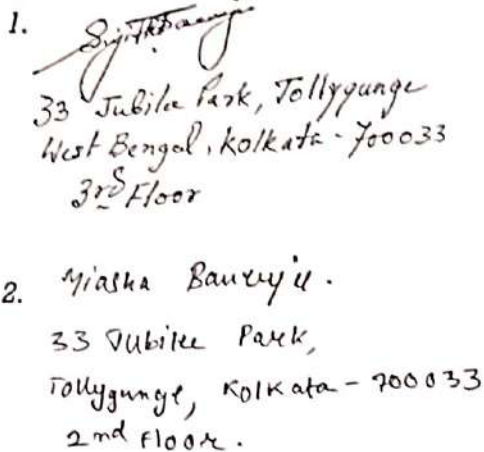 1.
33 Jubilee Park, Tollygunge
West Bengal, Kolkata - 700033
3rd Floor
2. Banerjee.
33 Jubilee Park,
Tollygunge, Kolkata - 700033
2nd Floor.